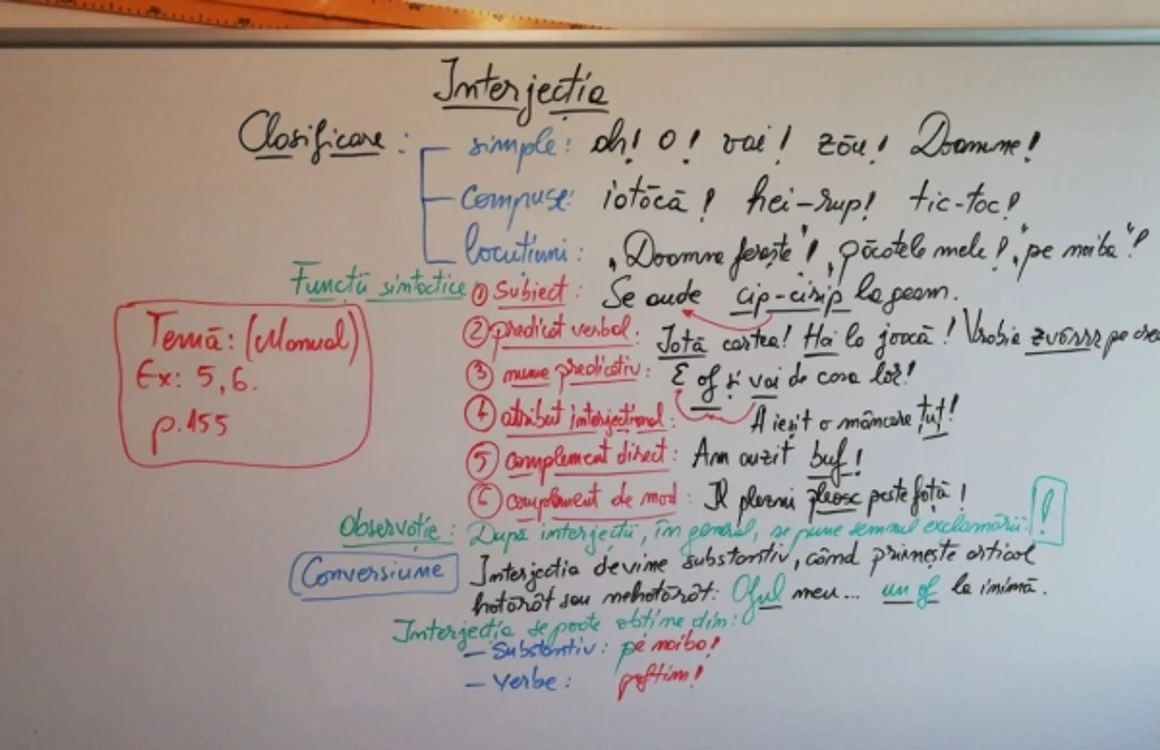 Interjecția
Clasificare: simple: oh! O! vai! zău! Doamne!
compuse: iotăcă! hei-rup! tic-toc!
locuțiuni: „Doamne ferește"! „păcatele mele! „pe naiba"!
Funcții sintactice ① Subiect: Se aude cip-cirip la geam.
② predicat verbal: Iată cartea! Hai la joacă! Vrabia zvârrr pe crea
③ nume predicativ: E of și vai de casa lor!
④ atribut interjecțional: A ieșit o mâncare țuț!
⑤ complement direct: Am auzit buf!
⑥ complement de mod: Îl plezni pleosc peste față!
Temă: (Manual)
Ex: 5,6.
p.155
Observație: După interjecții, în general, se pune semnul exclamării: !
Conversiune Interjecția devine substantiv, când primește articol
hotărât sau nehotărât: Oful meu... un of la inimă.
Interjecția se poate obține din:
- Substantiv: pe naiba!
- Verbe: poftim!